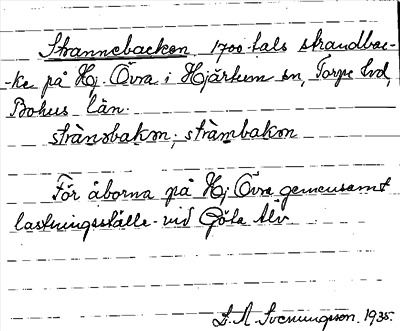 Strannebacken 1700-tals strandbac-
-ke på Hj. Övra i Hjärtum sn, Torpe hd,
Bohus län.
strànəbakən; stràmbakən
För åborna på Hj Övra gemensamt
lastningsställe vid Göta Älv
D. A. Svenningson. 1935.